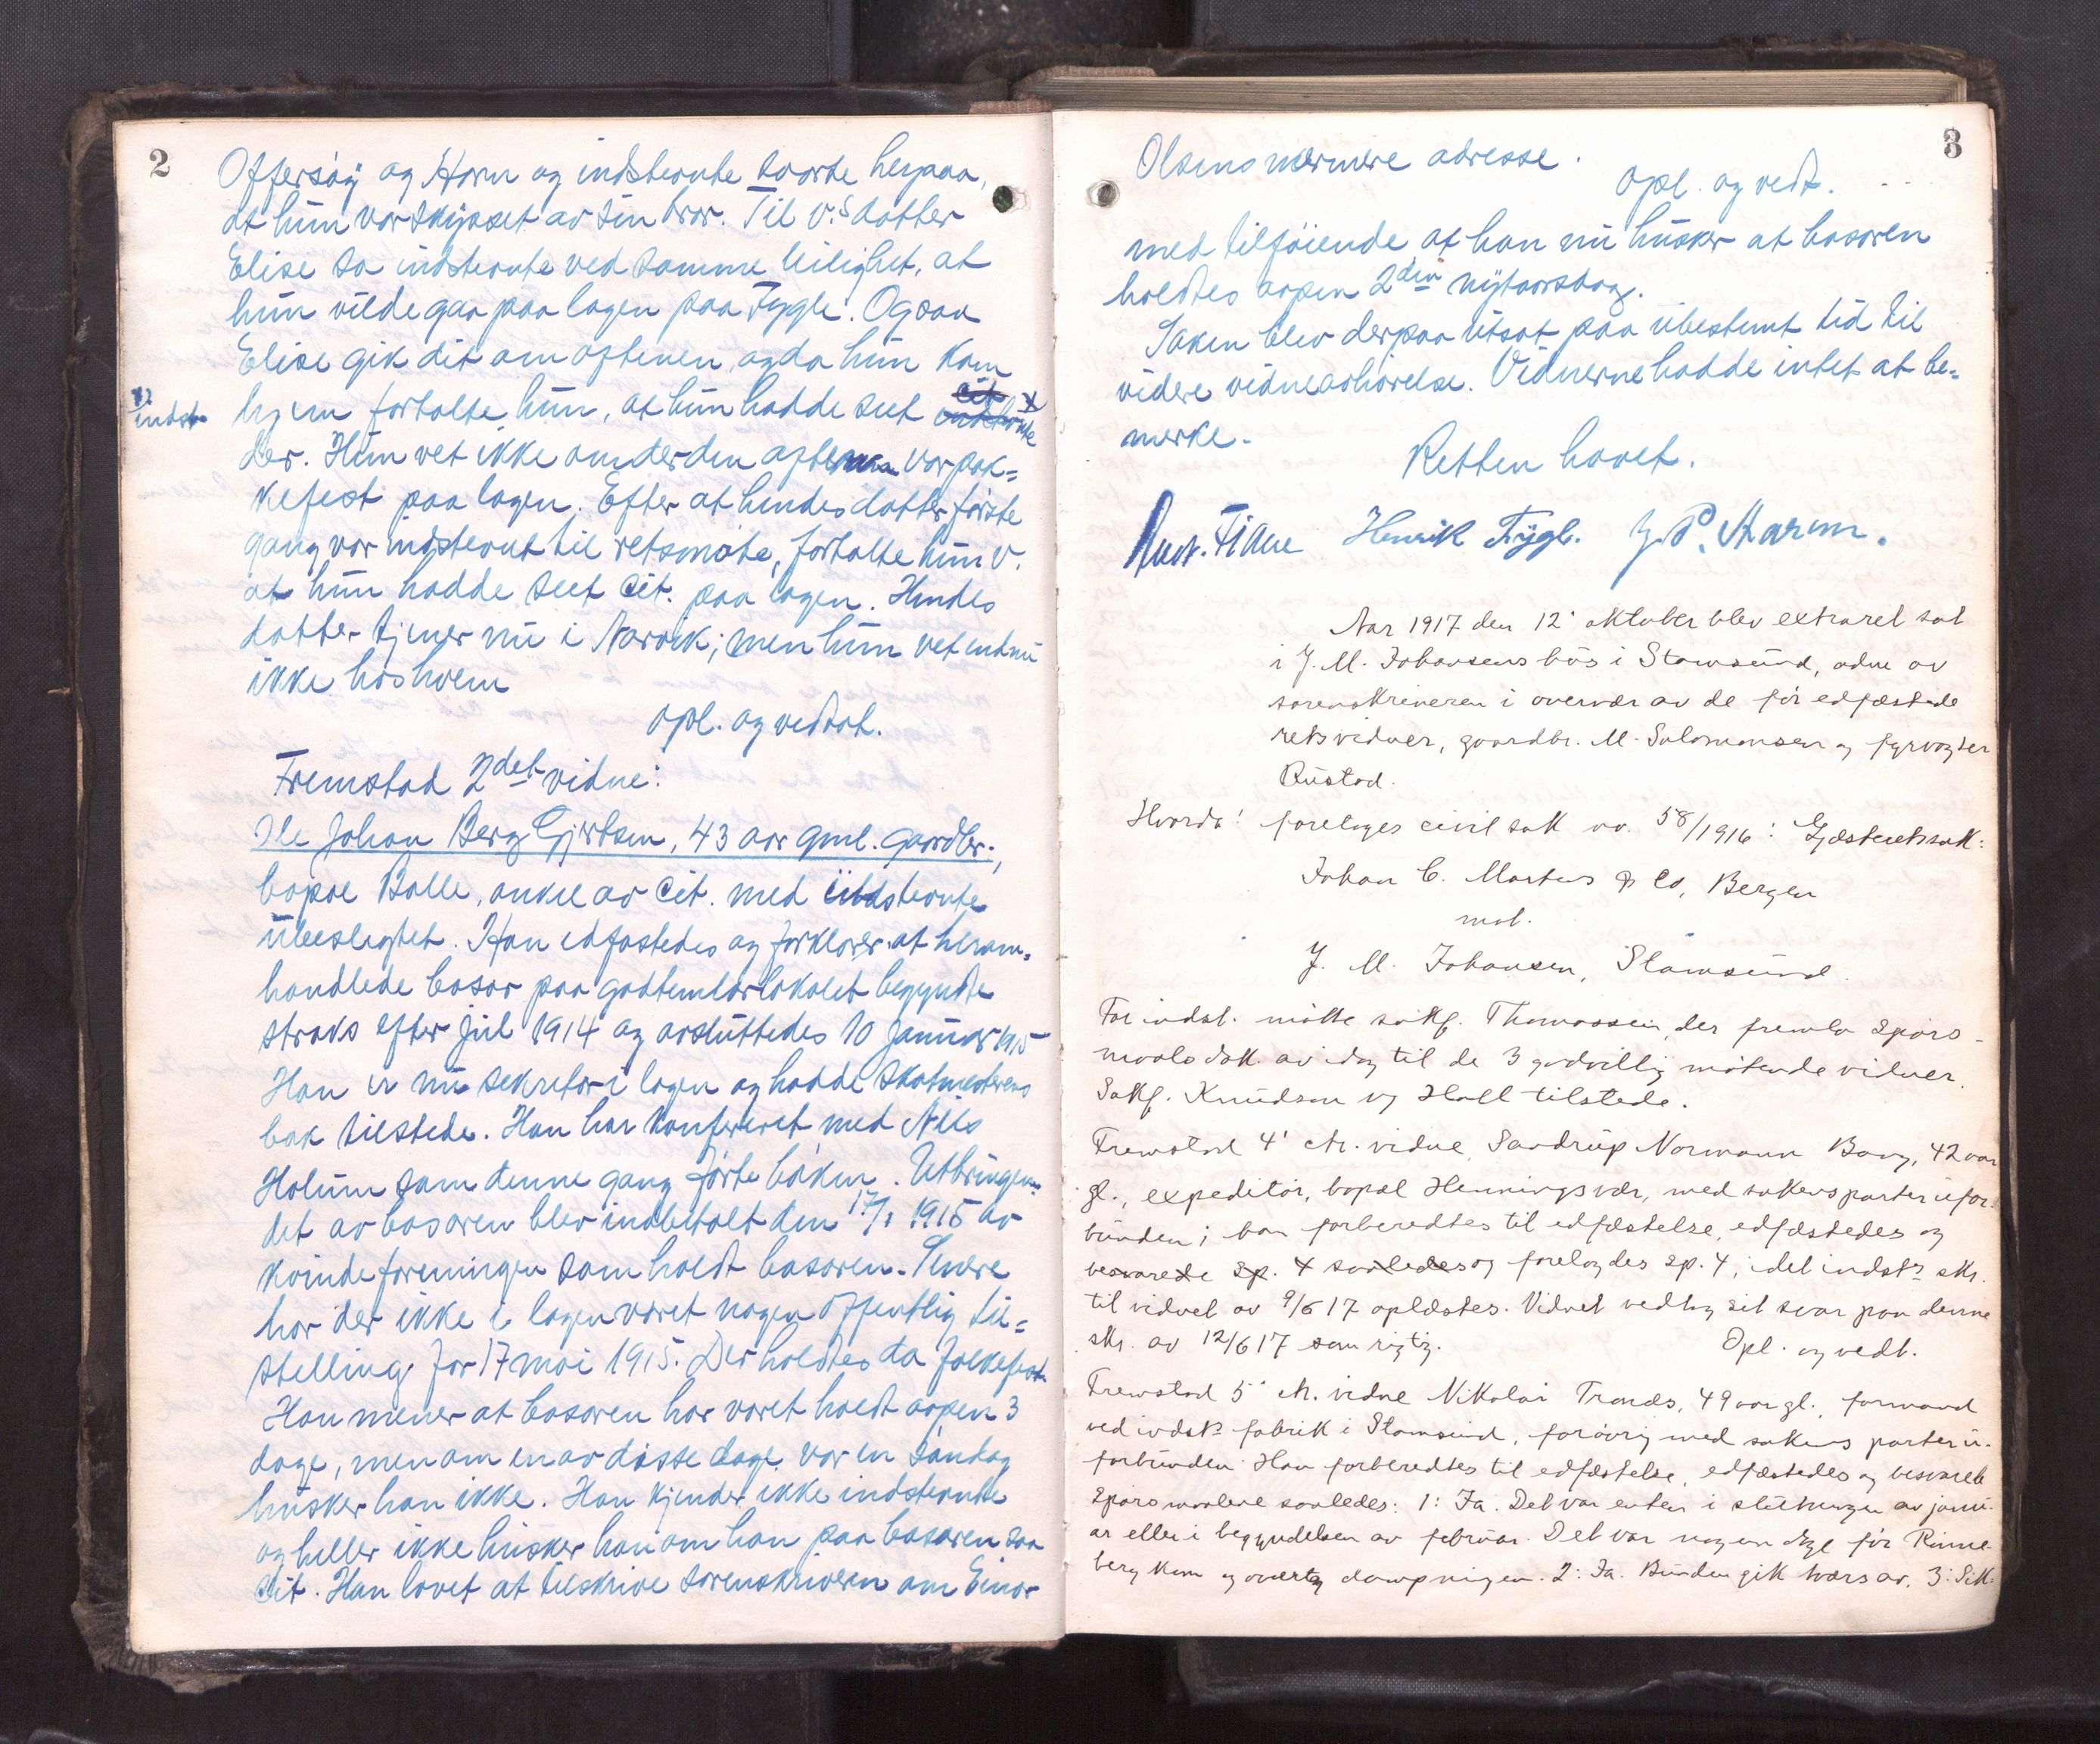 2
Offersøy og Horn og indstevnte svarte herpaa,
at hun var skysset av sin bror. Til v.s datter
Elise sa indstevnte ved samme leilighet, at
hun vilde gaa paa lagen paa Fygle. Ogsaa
Elise gik dit om aftenen, og da hun kom
hjem fortalte hun, at hun hadde seet cit. indstevnte x
x indst.
der. Hun vet ikke om der den aften var pak-
kefest paa logen. Efter at hendes datter første
gang var indstevnt til retsmøte, fortalte hun v.
at hun hadde seet cit. paa logen. Hendes
datter tjener nu i Narvik; men hun vet endnu
ikke hos hvem
opl. og vedtat.
Fremstod 2det vidne:
Ole Johan Berg Gjertsen, 43 aar gml. gaardbr.,
bopæl Bolle, onkel av cit. med indstevnte
ubeslegtet. Han edfæstedes og forklarer at herom-
handlede basar paa godtemplarlokalet begyndte
straks efter jul 1914 og avsluttedes 10 januar 1915
Han er nu sekretær i logen og hadde skatmesterens
bok tilstede. Han har konfereret med Nils
Holum som denne gang førte boken. Utbringen-
det av basaren blev indbetalt den 17/1 1915 av
kvindeforeningen som holdt basaren. Senere
har der ikke i logen været nogen offentlig til-
stelling før 17 mai 1915. Der holdtes da folkefest
Han mener at basaren har været holdt aapen 3
dage, men om en av disse dage var en søndag
husker han ikke. Han kjender ikke indstevnte
og heller ikke husker han om han paa basaren saa
cit. Han lovet at tilskrive sorenskriveren om Einar
3
Olsens nærmere adresse.
Opl. og vedt.
med tilføiende at han nu husker at basaren
holdtes aapen 2den nytaarsdag.
Saken blev derpaa utsat paa ubestemt tid til
videre vidneavhørelse. Vidnerne hadde intet at be-
merke.
Retten hævet.
Henrik Fygle. P. Harm.
Aar 1917 den 12' oktober blev extraret sat
i J. M. Johansens hus i Stamsund, adm. av
sorenskriveren i overvær av de før edfæstede
retsvidner, gaardbr. M. Salomonsen og fyrvogter
Rustad.
Hvorda! foretoges civil sak nr. 58/1916: Gjæsteretssak:
Johan C. Martens & Co, Bergen
mot.
J. M. Johansen, Stamsund.
For indst. møtte sakf. Thomassen, der fremla spørs-
maalsdok. av idag til de 3 godvillig møtende vidner.
Sakf. Knudsen og Hall tilstede.
Fremstod 4' ctr. vidne, Sandrup Normann Bang, 42 aar
gl., expeditør, bopæl Henningsvær, med sakens parter ufor-
bunden; han forberedtes til edfæstelse, edfæstedes og
besvarede sp. 4 saaledes og forelagdes sp. 4, idet indst's skr.
til vidnet av 9/6 17 oplæstes. Vidnet vedtog sit svar paa denne
skr. av 12/6 17 som rigtig. Opl. og vedt.
Fremstod 5' ctr. vidne Nikolai Tranås, 49 aar gl., formand
ved indst's fabrik i Stamsund, forøvrig med sakens parter u-
forbunden. Han forberedtes til edfæstelse, edfæstedes og besvarede
spørsmaalene saaledes: 1: Ja. Det var enten i slutningen av janu-
ar eller i begyndelsen av februar. Det var nogen dage før Rinne-
berg kom og overtog dampningen. 2: Ja. Bunden gik tvers av. 3: Sik-